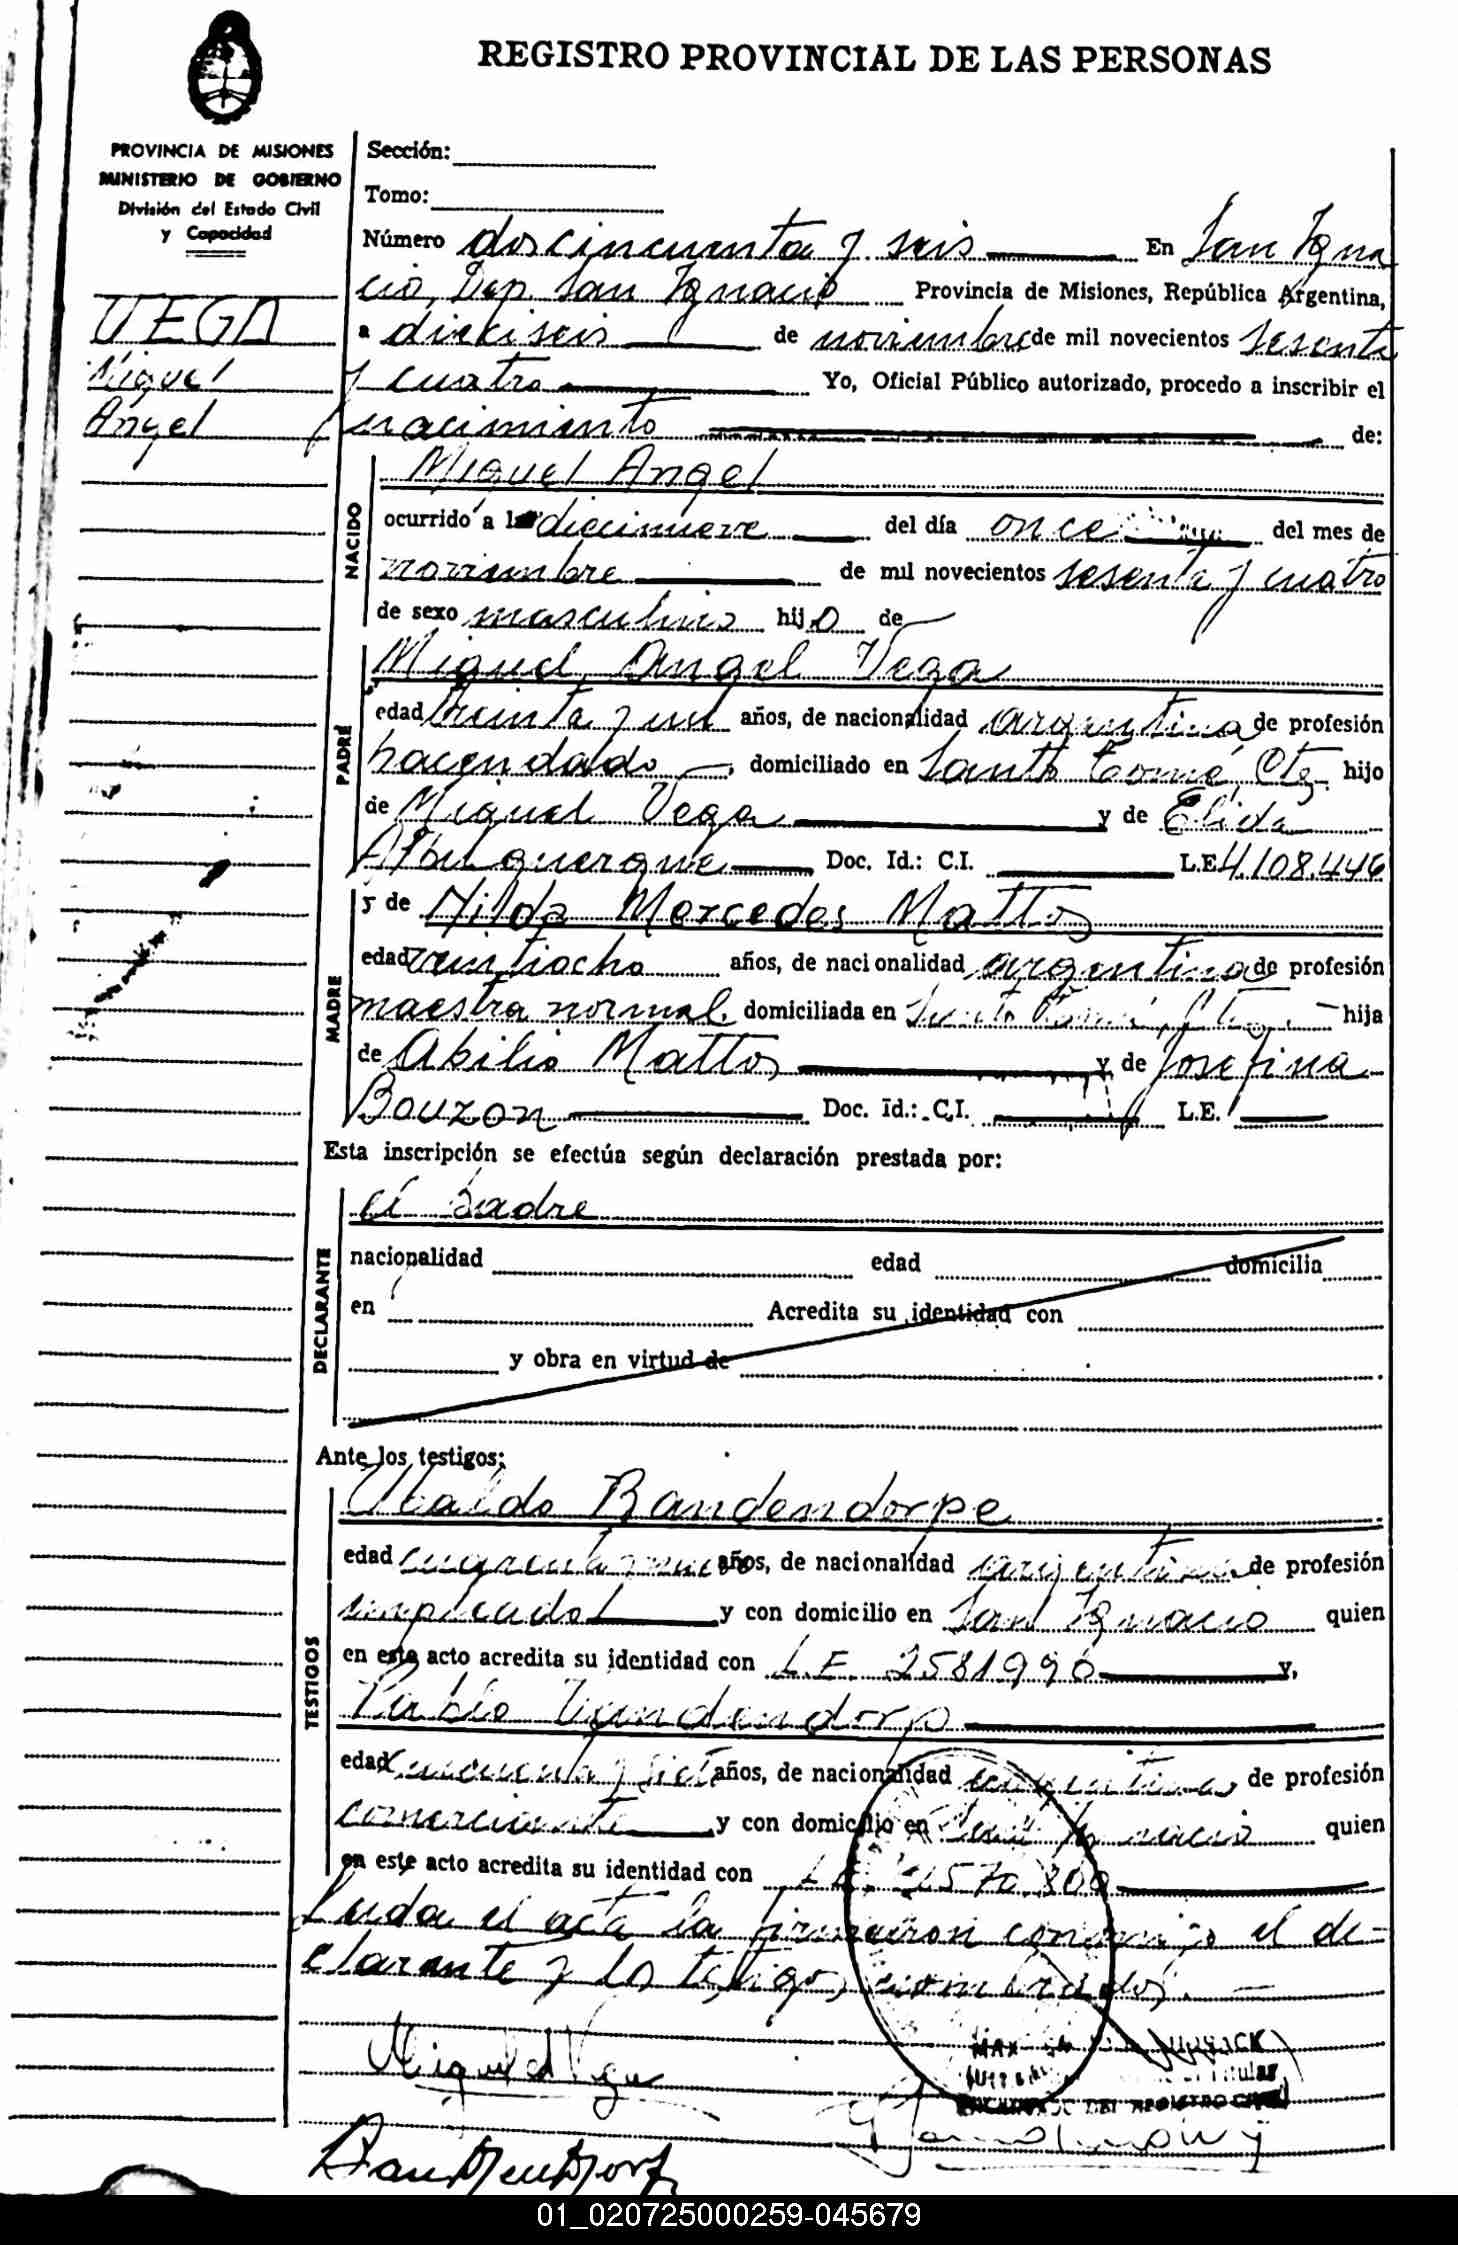 REGISTRO PROVINCIAL DE LAS PERSONAS
PROVINCIA DE MISIONES
MINISTERIO DE GOBIERNO
División del Estado Civil
y Capacidad
VEGA
Miguel
Angel
Sección:
Tomo:
Número doscincuenta y seis En San Igna
cio, Dep. San Ignacio Provincia de Misiones, República Argentina,
a dieciseis de noviembre de mil novecientos sesenta
y cuatro Yo, Oficial Público autorizado, procedo a inscribir el
nacimiento de:
NACIDO
Miguel Angel
ocurrido a las diecinueve del día once del mes de
noviembre de mil novecientos sesenta y cuatro
de sexo masculino hijo de
PADRE
Miguel Angel Vega
edad treinta y un años, de nacionalidad argentina de profesión
hacendado, domiciliado en Santo Tomé, Ctes hijo
de Miguel Vega y de Elida
Alburquerque Doc. Id.: C.I. L.E. 4.108.446
MADRE
y de Nilda Mercedes Mattos
edad veintiocho años, de nacionalidad argentina de profesión
maestra normal, domiciliada en Santo Tomé, Ctes. hija
de Abilio Mattos y de Josefina
Bouzon Doc. Id.: C.I. L.E.
Esta inscripción se efectúa según declaración prestada por:
DECLARANTE
el padre
nacionalidad edad domicilia
en Acredita su identidad con
y obra en virtud de
Ante los testigos:
TESTIGOS
Ubaldo Bandendorpe
edad cuarenta y años, de nacionalidad argentina de profesión
empleado y con domicilio en San Ignacio quien
en este acto acredita su identidad con L.E. 2581990 y,
Pablo Vandendorp
edad cincuenta y siete años, de nacionalidad argentina de profesión
comerciante y con domicilio en San Ignacio quien
en este acto acredita su identidad con
Leida el acta la firmaron conmigo el de-
clarante y los testigos nombrados.
Miguel A Vega
ENCARGADO DEL REGISTRO CIVIL
01_020725000259-045679